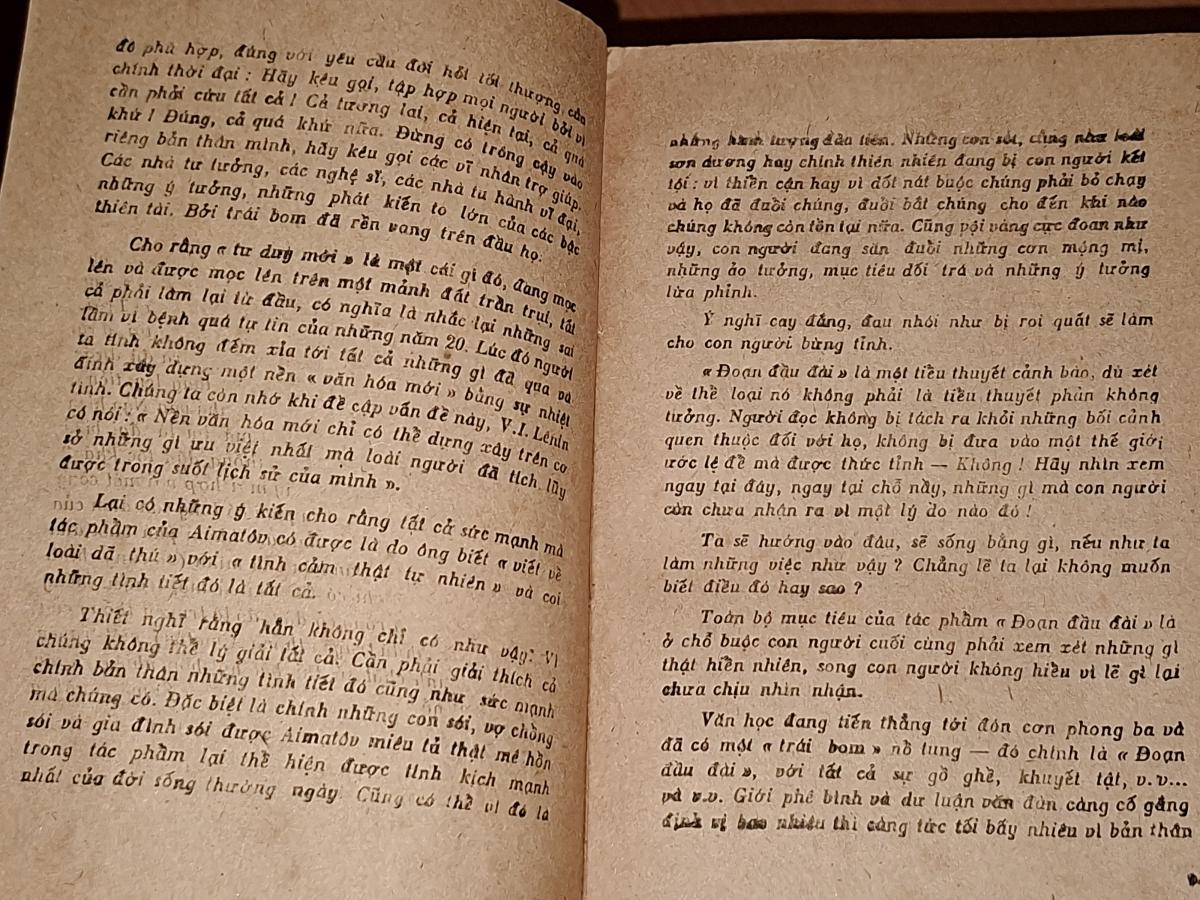 đó phù hợp, đúng với yêu cầu đòi hỏi tối thượng của
chính thời đại : Hãy kêu gọi, tập hợp mọi người bởi vì
cần phải cứu tất cả ! Cả tương lai, cả hiện tại, cả quá
khứ ! Đúng, cả quá khứ nữa. Đừng có trông cậy vào
riêng bản thân mình, hãy kêu gọi các vĩ nhân trợ giúp.
Các nhà tư tưởng, các nghệ sĩ, các nhà tu hành vĩ đại,
những ý tưởng, những phát kiến to lớn của các bậc
thiên tài. Bởi trái bom đã rền vang trên đầu họ.
Cho rằng « tư duy mới » là một cái gì đó, đang mọc
lên và được mọc lên trên một mảnh đất trần trụi, tất
cả phải làm lại từ đầu, có nghĩa là nhắc lại những sai
lầm vì bệnh quá tự tin của những năm 20. Lúc đó người
ta tính không đếm xỉa tới tất cả những gì đã qua và
định xây dựng một nền « văn hóa mới » bằng sự nhiệt
tình. Chúng ta còn nhớ khi đề cập vấn đề này, V.I. Lênin
có nói : « Nền văn hóa mới chỉ có thể dựng xây trên cơ
sở những gì ưu việt nhất mà loài người đã tích lũy
được trong suốt lịch sử của mình ».
Lại có những ý kiến cho rằng tất cả sức mạnh mà
tác phẩm của Aimatôv có được là do ông biết « viết về
loài dã thú » với « tình cảm thật tự nhiên » và coi
những tình tiết đó là tất cả.
Thiết nghĩ rằng hẳn không chỉ có như vậy. Vì
chúng không thể lý giải tất cả. Cần phải giải thích cả
chính bản thân những tình tiết đó cũng như sức mạnh
mà chúng có. Đặc biệt là chính những con sói, vợ chồng
sói và gia đình sói được Aimatôv miêu tả thật mê hồn
trong tác phẩm lại thể hiện được tính kịch mạnh
nhất của đời sống thường ngày. Cũng có thể vì đó là
những hình tượng đầu tiên. Những con sói, cũng như loài
sơn dương hay chính thiên nhiên đang bị con người kết
tội : vì thiển cận hay vì dốt nát buộc chúng phải bỏ chạy
và họ đã đuổi chúng, đuổi bắt chúng cho đến khi nào
chúng không còn tồn tại nữa. Cũng vội vàng cực đoan như
vậy, con người đang săn đuổi những cơn mộng mị,
những ảo tưởng, mục tiêu dối trá và những ý tưởng
lừa phỉnh.
Ý nghĩ cay đắng, đau nhói như bị roi quất sẽ làm
cho con người bừng tỉnh.
« Đoạn đầu đài » là một tiểu thuyết cảnh báo, dù xét
về thể loại nó không phải là tiểu thuyết phản không
tưởng. Người đọc không bị tách ra khỏi những bối cảnh
quen thuộc đối với họ, không bị đưa vào một thế giới
ước lệ để mà được thức tỉnh — Không ! Hãy nhìn xem
ngay tại đây, ngay tại chỗ nầy, những gì mà con người
còn chưa nhận ra vì một lý do nào đó !
Ta sẽ hướng vào đâu, sẽ sống bằng gì, nếu như ta
làm những việc như vậy ? Chẳng lẽ ta lại không muốn
biết điều đó hay sao ?
Toàn bộ mục tiêu của tác phẩm « Đoạn đầu đài » là
ở chỗ buộc con người cuối cùng phải xem xét những gì
thật hiển nhiên, song con người không hiểu vì lẽ gì lại
chưa chịu nhìn nhận.
Văn học đang tiến thẳng tới đón cơn phong ba và
đã có một « trái bom » nổ tung — đó chính là « Đoạn
đầu đài », với tất cả sự gồ ghề, khuyết tật, v.v...
và v.v. Giới phê bình và dư luận văn đàn càng cố gắng
định vị bao nhiêu thì càng tức tối bấy nhiêu vì bản thân